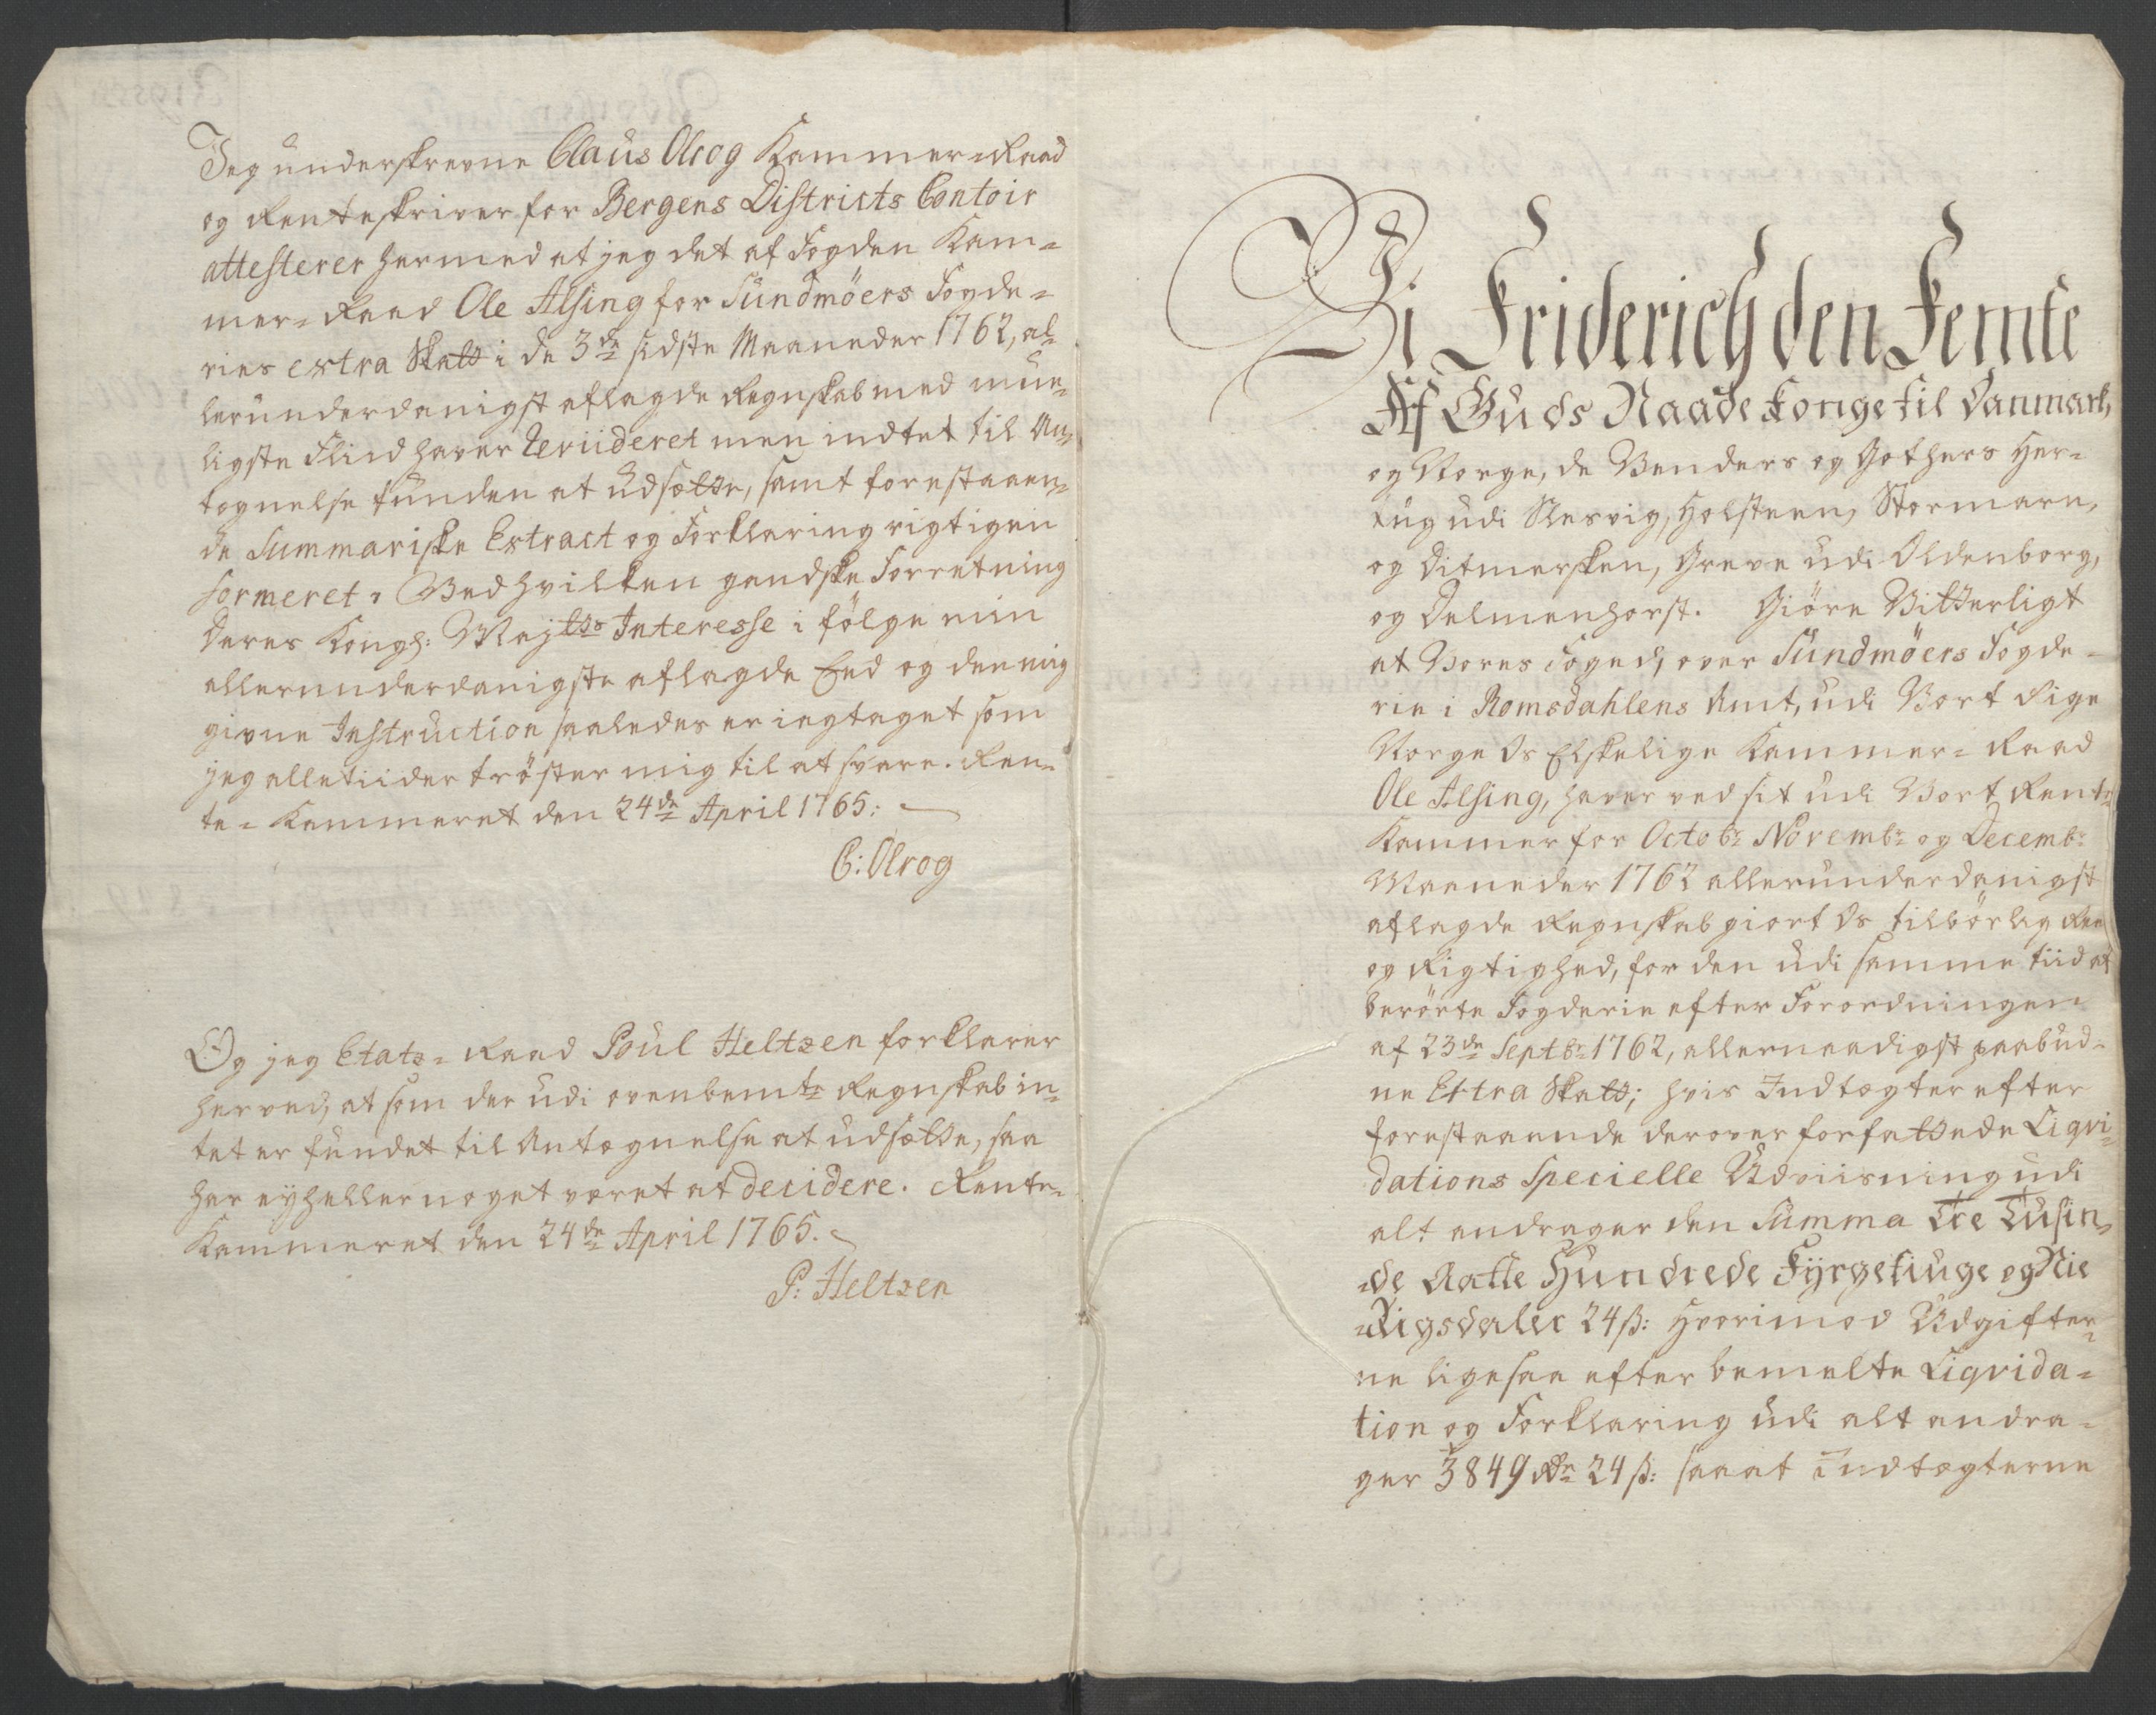 Jeg underskrevne Claus Olrog Kammer-Raad
og Renteskriver for Bergens Districts Contoir
attesterer hermed at jeg det af Fogden Kam-
mer-Raad Ole Alsing for Sundmöers Fogde-
ries extra Skatt i de 3de sidste Maaneder 1762, al-
lerunderdanigst aflagde Regnskab med mue-
ligste Fliid haver Reviideret men indtet til An-
tegnelse funden at udsætte, samt forestaaen-
de Summariske Extract og Forklaring rigtigen
formeret, Ved hvilken gandske Forretning
Deres Kongl: Maj.tts Interesse i fölge min
allerunderdanigste aflagde Eed og den mig
givne Instruction saaledes er iagtaget som
jeg alletiider tröster mig til at svare. Ren-
te-Kammeret den 24de April 1765:
C: Olrog
Og jeg Etats-Raad Poul Heltzen forklarer
herved, at som der udi ovenbemte Regnskab in-
tet er fundet til Antegnelse at udsætte, saa
har eyheller noget været at decidere. Rente-
Kammeret den 24de April 1765.
P: Heltzen
Vi Friderich den Femte
Af Guds Naade Konge til Danmark,
og Norge, de Venders og Gothers Her-
tug udi Slesvig, Holsteen, Stormarn,
og Ditmersken, Greve udi Oldenborg,
og Delmenhorst. Giöre Vitterligt
at Vores Foged, over Sundmöers Fogde-
rie i Romsdahlens Amt, udi Vort Rige
Norge Os Elskelige Kammer-Raad
Ole Alsing, haver ved sit udi Vort Rente
Kammer for Octobr Novembr og Decembr
Maaneder 1762 allerunderdanigst
aflagde Regnskab giort Os tilbörlig Rede
og Rigtighed, for den udi samme tiid af
berörte Fogderie efter Forordningen
af 23de Septbr 1762, allernaadigst paabud-
ne Extra Skatt; hvis Indtægter efter
forestaaende derover forfattede Liqvi-
dations Specielle Udviisning udi
alt andrager den Summa Tre Tusin-
de Aatte Hundrede Fyrgetiuge og Nie
Rigsdaler 24 ß: Hvorimod Udgifter-
ne ligesaa efter bemelte Liqvida-
tion og Forklaring udi alt andra-
ger 3849 Rdr 24 ß: saa at Indtægterne